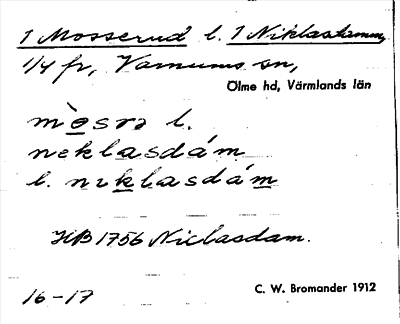 1 Mosserud l. 1 Niklasdamm,
1/4 fr, Varnums sn,
Ölme hd, Värmlands län
mòsrə l.
neklasdám
l. nɩklasdám
JB 1756 Niclasdam.
16-17
C. W. Bromander 1912